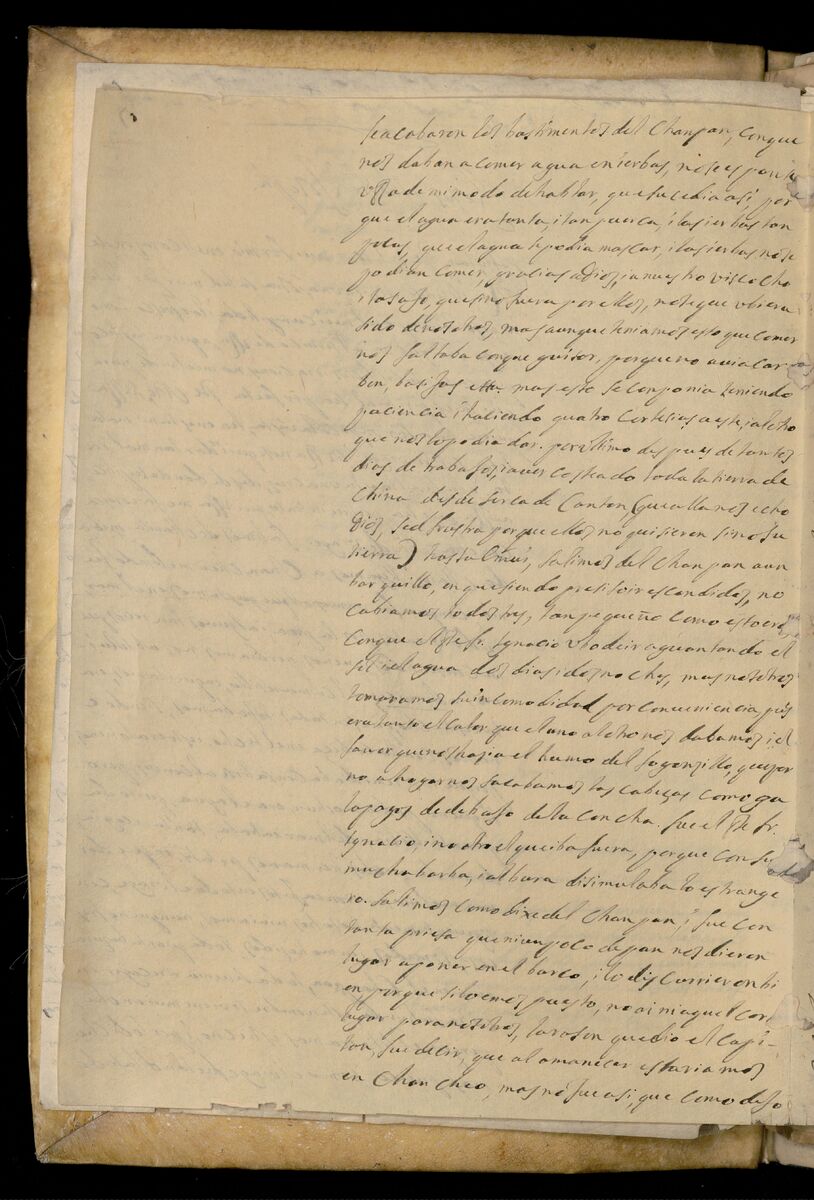 se acabaron los bastimentos del Champan, conque
nos daban a comer agua en ierbas, no se espante
VRa de mi modo de hablar, que sucedia asi, por
que el agua era tanta, i tan puerca, i las ierbas tan
pocas, que el agua se podia mascar, i las ierbas no se
podian comer, gracias a Dios, i a nuestro viscocho
i tasajo, que si no fuera por ellos, no se que ubiera
sido de nosotros, mas aunque teniamos esto que comer
nos faltaba con que guisar, porque no avia car
bon, basijas etta. mas este se componia teniendo
paciencia i haciendo quatro cortesias a este, i al otro
que nos lo podia dar. por ultimo despues de tantos
dias de trabajos, i aver costeado toda la tierra de
China desde serca de Canton, (que alla nos echo
Dios, sed frustra porque ellos no quisieron sino su
tierra) hasta Emui, salimos del Champan a un
barquillo, en que siendo presiso ir escondidos, no
cabiamos todos tres, tan pequeño como esto era,
conque el Pe fr. Ignacio ubo de ir aguantando el
sol i el agua dos dias i dos noches, mas nosotros
tomaramos su incomodidad por conveniencia pues
era tanto el calor que el uno al otro nos dabamos, i el
favor que nos hazia el humo del fogonsillo, que por
no ahogarnos sacabamos las cabezas como ga
lapagos de debajo de la concha. fue el Pe fr.
Ignacio, i no otro el que iba fuera, porque con su
mucha barba, i albura disimulaba lo estrange
ro. salimos como dixe del Champan, i fue con
tanta priesa que ni un poco de pan nos dieron
lugar a poner en el barco, i lo discurrieron bi
en porque si lo emos puesto, no ai ni aquel cort
lugar para nosotros, la rason que dio el Capi-
tan, fue decir, que al amanecer estariamos
en Chancheo, mas no fue asi, que como dejo